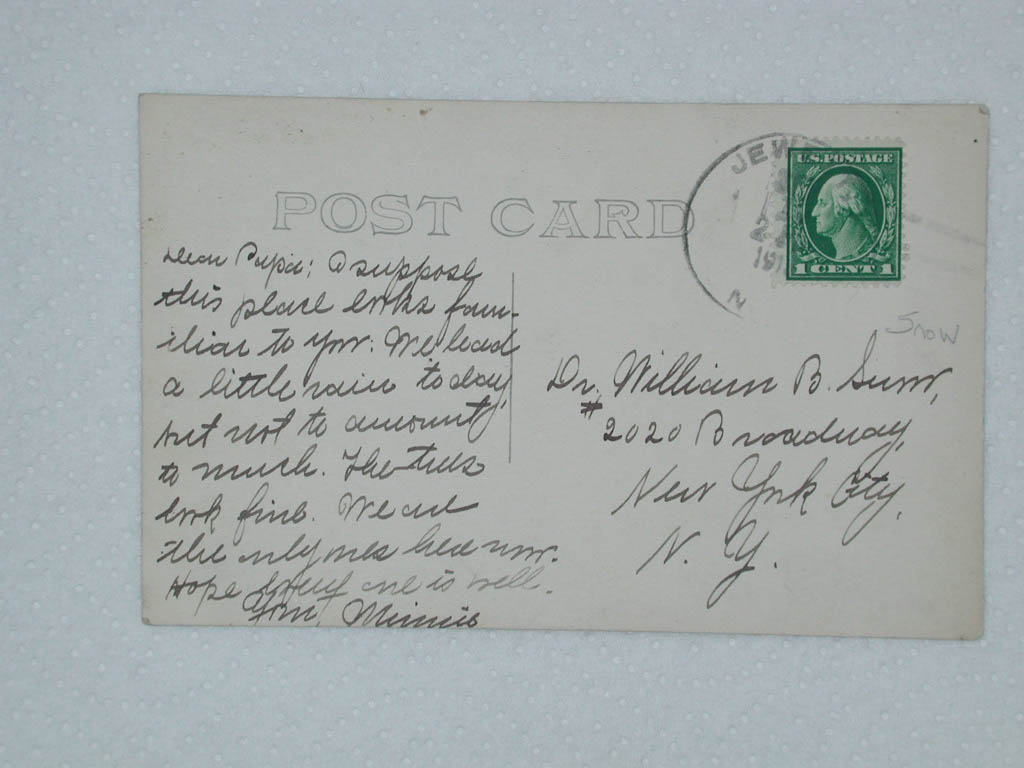 POST CARD
JEW
2
191
N
U.S. POSTAGE
1 CENT 1
Snow
Dear Papa: I suppose
this place looks fam-
iliar to you. We had
a little rain to day
but not to amount
to much. The trees
look fine. We are
the only ones here now.
Hope every one is well.
From, Minnie
Dr. William B.
# 2020 Broadway,
New York City,
N. Y.